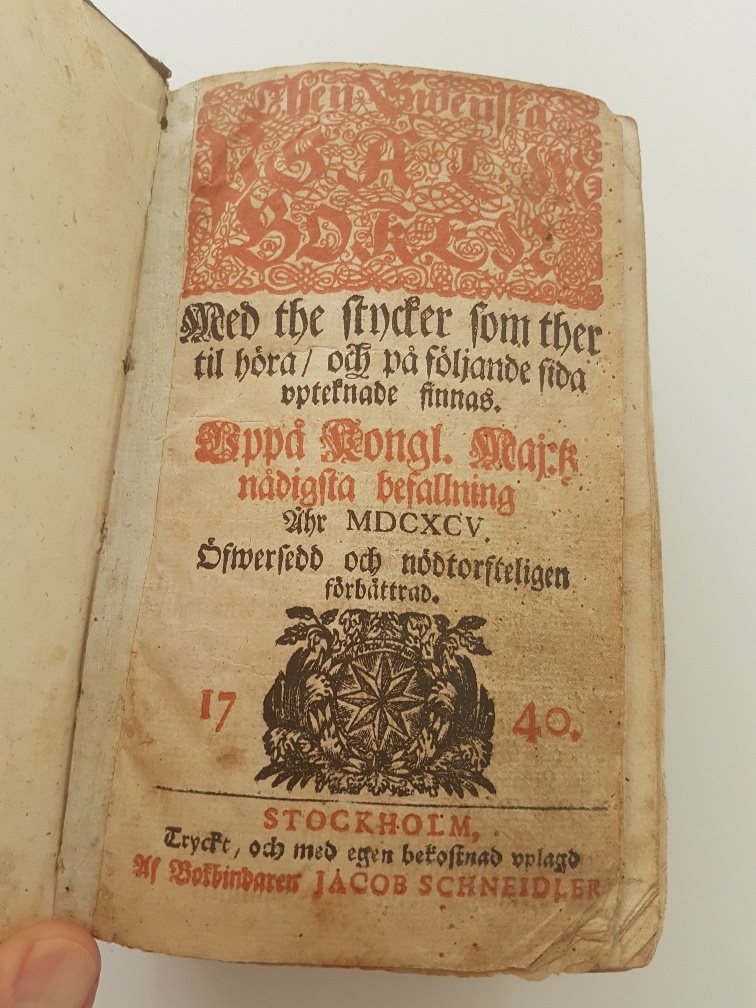 Then Swenska
PSALM
BOKEN
Med the stycker som ther
til höra/ och på följande sida
vpteknade finnas.
Uppå Kongl. Maj:tz
nådigsta befallning
Åhr MDCXCV.
Öfwersedd och nödtorfteligen
förbättrad.
17 40.
STOCKHOLM,
Tryckt, och med egen bekostnad vplagd
Af Bokbindaren JACOB SCHNEIDLER